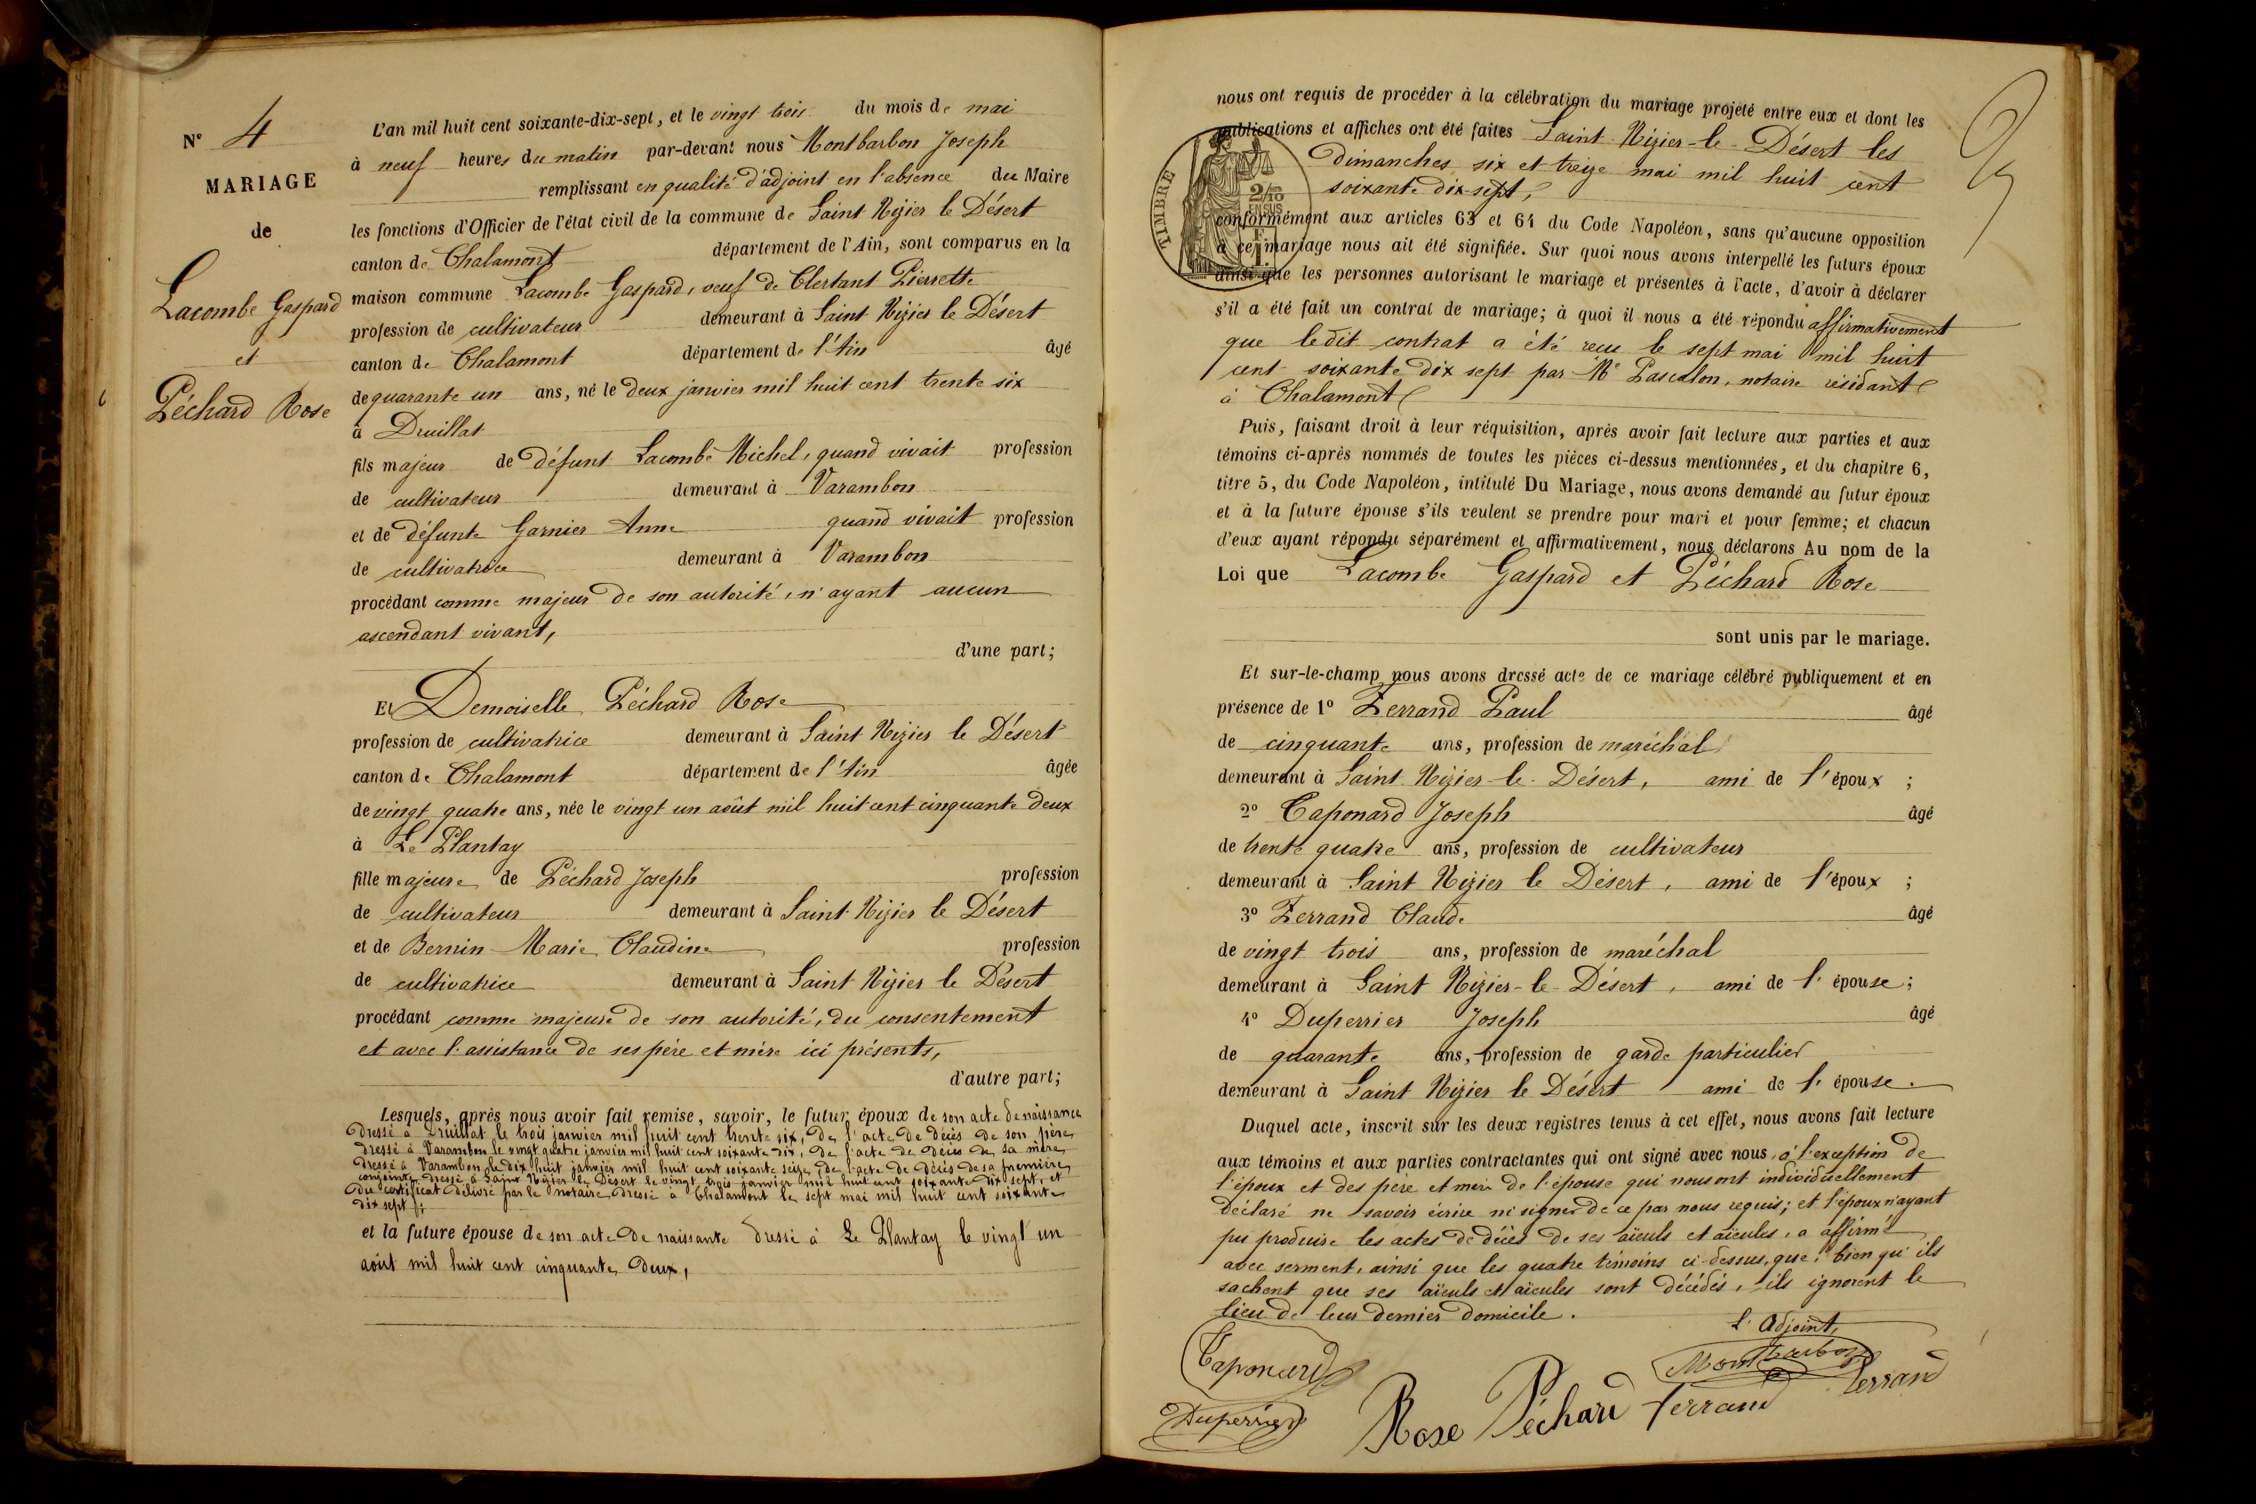 N° 4
MARIAGE
de
Lacombe Gaspard
et
Péchard Rose
L'an mil huit cent soixante-dix-sept, et le vingt trois du mois de mai
à neuf heures du matin par-devant nous Montbarbon Joseph
remplissant en qualité d'adjoint en l'absence du Maire
les fonctions d'Officier de l'état civil de la commune de Saint Nizier le Désert
canton de Chalamont département de l'Ain, sont comparus en la
maison commune Lacombe Gaspard, veuf de Clertant Pierrette
profession de cultivateur demeurant à Saint Nizier le Désert
canton de Chalamont département de l'Ain âgé
de quarante un ans, né le deux janvier mil huit cent trente six
à Druillat
fils majeur de défunt Lacombe Michel, quand vivait profession
de cultivateur demeurant à Varambon
et de défunte Garnier Anne quand vivait profession
de cultivatrice demeurant à Varambon
procédant comme majeur de son autorité, n'ayant aucun
ascendant vivant,
d'une part;
Et Demoiselle Péchard Rose
profession de cultivatrice demeurant à Saint Nizier le Désert
canton de Chalamont département de l'Ain âgée
de vingt quatre ans, née le vingt un août mil huit cent cinquante deux
à Le Plantay
fille majeure de Péchard Joseph profession
de cultivateur demeurant à Saint-Nizier le Désert
et de Bernin Marie Claudine profession
de cultivatrice demeurant à Saint Nizier le Désert
procédant comme majeure de son autorité, du consentement
et avec l'assistance de ses père et mère ici présents,
d'autre part;
Lesquels, après nous avoir fait remise, savoir, le futur époux de son acte de naissance
dressé à Druillat le trois janvier mil huit cent trente six, de l'acte de décès de son père
dressé à Varambon le vingt quatre janvier mil huit cent soixante dix, de l'acte de décès de sa mère
dressé à Varambon le dix huit janvier mil huit cent soixante seize, de l'acte de décès de sa première
conjointe dressé à Saint Nizier le Désert le vingt trois janvier mil huit cent soixante dix sept, et
du certificat délivré par le notaire dressé à Chalamont le sept mai mil huit cent soixante
dix sept;
et la future épouse de son acte de naissante dressé à Le Plantay le vingt un
août mil huit cent cinquante deux,
nous ont requis de procéder à la célébration du mariage projeté entre eux et dont les
publications et affiches ont été faites Saint-Nizier-le-Désert les
dimanches six et treize mai mil huit cent
soixante dix-sept,
TIMBRE
2/10
EN SUS
conformément aux articles 63 et 64 du Code Napoléon, sans qu'aucune opposition
à ce mariage nous ait été signifiée. Sur quoi nous avons interpellé les futurs époux
ainsi que les personnes autorisant le mariage et présentes à l'acte, d'avoir à déclarer
s'il a été fait un contrat de mariage; à quoi il nous a été répondu affirmativement
que ledit contrat a été reçu le sept mai mil huit
cent soixante dix sept par Me Pascalon, notaire résidant
à Chalamont
Puis, faisant droit à leur réquisition, après avoir fait lecture aux parties et aux
témoins ci-après nommés de toutes les pièces ci-dessus mentionnées, et du chapitre 6,
titre 5, du Code Napoléon, intitulé Du Mariage, nous avons demandé au futur époux
et à la future épouse s'ils veulent se prendre pour mari et pour femme; et chacun
d'eux ayant répondu séparément et affirmativement, nous déclarons Au nom de la
Loi que Lacombe Gaspard et Péchard Rose
sont unis par le mariage.
Et sur-le-champ nous avons dressé acte de ce mariage célébré publiquement et en
présence de 1° Ferrand Paul âgé
de cinquante ans, profession de maréchal
demeurant à Saint-Nizier-le-Désert, ami de l'époux ;
2° Caponard Joseph âgé
de trente quatre ans, profession de cultivateur
demeurant à Saint Nizier le Désert, ami de l'époux ;
3° Ferrand Claude âgé
de vingt trois ans, profession de maréchal
demeurant à Saint Nizier-le-Désert, ami de l'épouse;
4° Duperrier Joseph âgé
de quarante ans, profession de garde particulier
demeurant à Saint Nizier le Désert ami de l'épouse.
Duquel acte, inscrit sur les deux registres tenus à cet effet, nous avons fait lecture
aux témoins et aux parties contractantes qui ont signé avec nous, à l'exception de
l'époux et des père et mère de l'épouse qui nous ont individuellement
déclaré ne savoir écrire ni signer de ce par nous requis; et l'époux n'ayant
pu produire les actes de décès de ses aïeuls et aïeules, a affirmé
avec serment, ainsi que les quatre témoins ci-dessus, que, bien qu'ils
sachent que ses aïeuls et aïeules sont décédés, ils ignorent le
lieu de leur dernier domicile.
L'Adjoint,
Caponard
Montbarbon
Ferrand
Duperrier
Rose Péchard
Ferrand